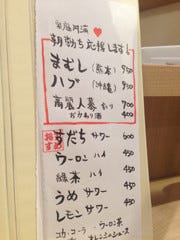 家庭円満
朝勃ち応援します!
まむし (熊本) 950
ハブ (沖縄) 950
高麗人参 あり 700
おかわり酒 400
おすすめ すだち サワー 500
ウーロン ハイ 450
緑茶 ハイ 450
うめ サワー 450
レモン サワー 450
コカ・コーラ ウーロン茶
オレンジジュース